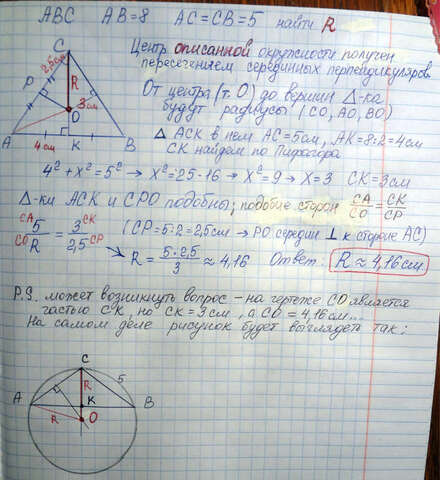 ABC AB=8 AC=CB=5 найти R
Центр описанной окружности получен
пересечением серединных перпендикуляров.
От центра (т. О) до вершин Δ-ка
будут радиусы (CO, AO, BO)
Δ ACK в нем AC=5см, AK=8:2=4см
CK найдем по Пифагора
4²+X²=5² → X²=25-16 → X²=9 → X=3 CK=3см
Δ-ки ACK и CPO подобны; подобие сторон CA/CO = CK/CP
CA 5 / CO R = 3 CK / 2,5 CP (CP=5:2=2,5см → PO середин ⊥ к стороне AC)
R = 5·2,5 / 3 ≈ 4,16 Ответ: R ≈ 4,16см
P.S. может возникнуть вопрос – на чертеже CO является
частью CK, но CK=3см, а CO=4,16см...
На самом деле рисунок будет выглядеть так:
C
2,5см
P
R
O
3см
A
4см
K
B
C
R
5
A
K
B
R
O